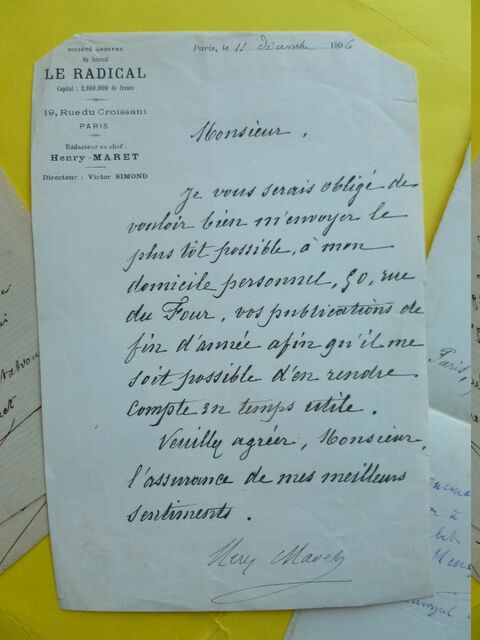 SOCIÉTÉ ANONYME
du Journal
LE RADICAL
Capital : 2.000.000 de francs
19, Rue du Croissant
PARIS
Rédacteur en chef :
Henry-MARET
Directeur : Victor SIMOND
Paris, le 11 décembre 1896
Monsieur,
Je vous serais obligé de
vouloir bien m'envoyer le
plus tôt possible, à mon
domicile personnel, 50, rue
du Four, vos publications de
fin d'année afin qu'il me
soit possible d'en rendre
compte en temps utile.
Veuillez agréer, Monsieur,
l'assurance de mes meilleurs
sentiments.
Paris,